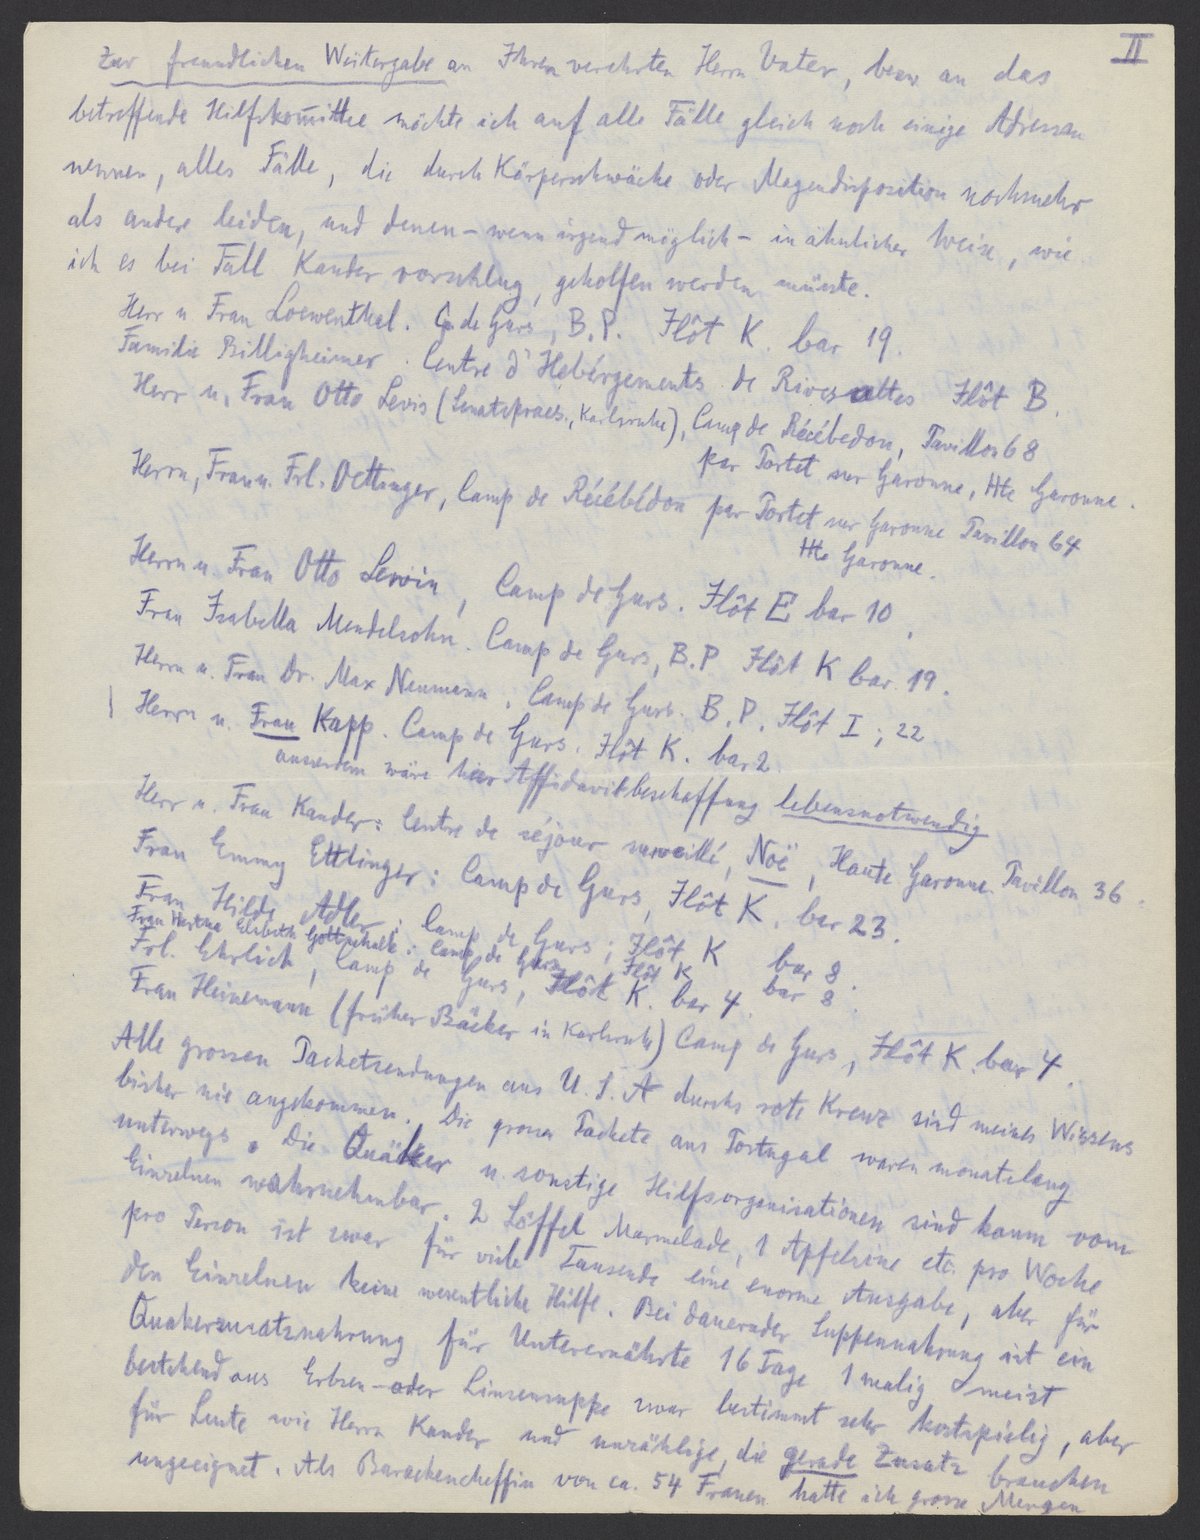 II
Zur freundlichen Weitergabe an Ihren verehrten Herrn Vater, bezw an das
betreffende Hilfskomittee möchte ich auf alle Fälle gleich noch einige Adressen
nennen, alles Fälle, die durch Körperschwäche oder Magendisposition nochmehr
als andere leiden, und denen - wenn irgend möglich - in ähnlicher Weise, wie
ich es bei Fall Kander vorschlug, geholfen werden müsste.
Herr u. Frau Loewenthal. C. de Gurs, B.P. Ilôt K. bar 19.
Familie Billigheimer. Centre d'Hebérgements de Rivesaltes Ilôt B.
Herr u. Frau Otto Levis (Senatspraes., Karlsruhe), Camp de Récébedon, Pavillon 68
par Portet sur Garonne, Hte Garonne.
Herrn, Frau u. Frl. Oettinger, Camp de Récébédon par Portet sur Garonne Pavillon 64
Hte Garonne.
Herrn u. Frau Otto Lewin, Camp de Gurs. Ilôt E bar 10.
Frau Isabella Mendelsohn. Camp de Gurs, B.P Ilôt K bar. 19.
Herrn u. Frau Dr. Max Neumann, Camp de Gurs. B.P. Ilôt I; 22
Herrn u. Frau Kapp. Camp de Gurs. Ilôt K. bar 2.
ausserdem wäre hier Affidavitbeschaffung lebensnotwendig
Herr u. Frau Kander: Centre de séjour surveillé, Noë, Haute Garonne. Pavillon 36.
Frau Emmy Ettlinger: Camp de Gurs, Ilôt K. bar 23.
Frau Hilde Adler: Camp de Gurs; Ilôt K bar 8.
Frau Hertha Elisbeth Gottschalk: Camp de Gurs Ilôt K bar 8.
Frl. Ehrlich, Camp de Gurs, Ilôt K. bar 4.
Frau Heinemann (früher Bäcker in Karlsruhe) Camp de Gurs, Ilôt K. bar 4.
Alle grossen Packetsendungen aus U.S.A durchs rote Kreuz sind meines Wissens
bisher nie angekommen. Die grossen Packete aus Portugal waren monatelang
unterwegs. Die Quäker u. sonstige Hilfsorganisationen sind kaum vom
Einzelnen wahrnehmbar. 2 Löffel Marmelade, 1 Apfelsine etc. pro Woche
pro Person ist zwar für viele Tausende eine enorme Ausgabe, aber für
den Einzelnen keine wesentliche Hilfe. Bei dauernder Suppennahrung ist ein
Quakerzusatznahrung für Unterernährte 16 Tage 1 malig meist
bestehend aus Erbsen- oder Linsensuppe zwar bestimmt sehr kostspielig, aber
für Leute wie Herrn Kander und unzählige, die gerade Zusatz brauchen
ungeeignet. Als Barackencheffin von ca. 54 Frauen hatte ich grosse Mengen